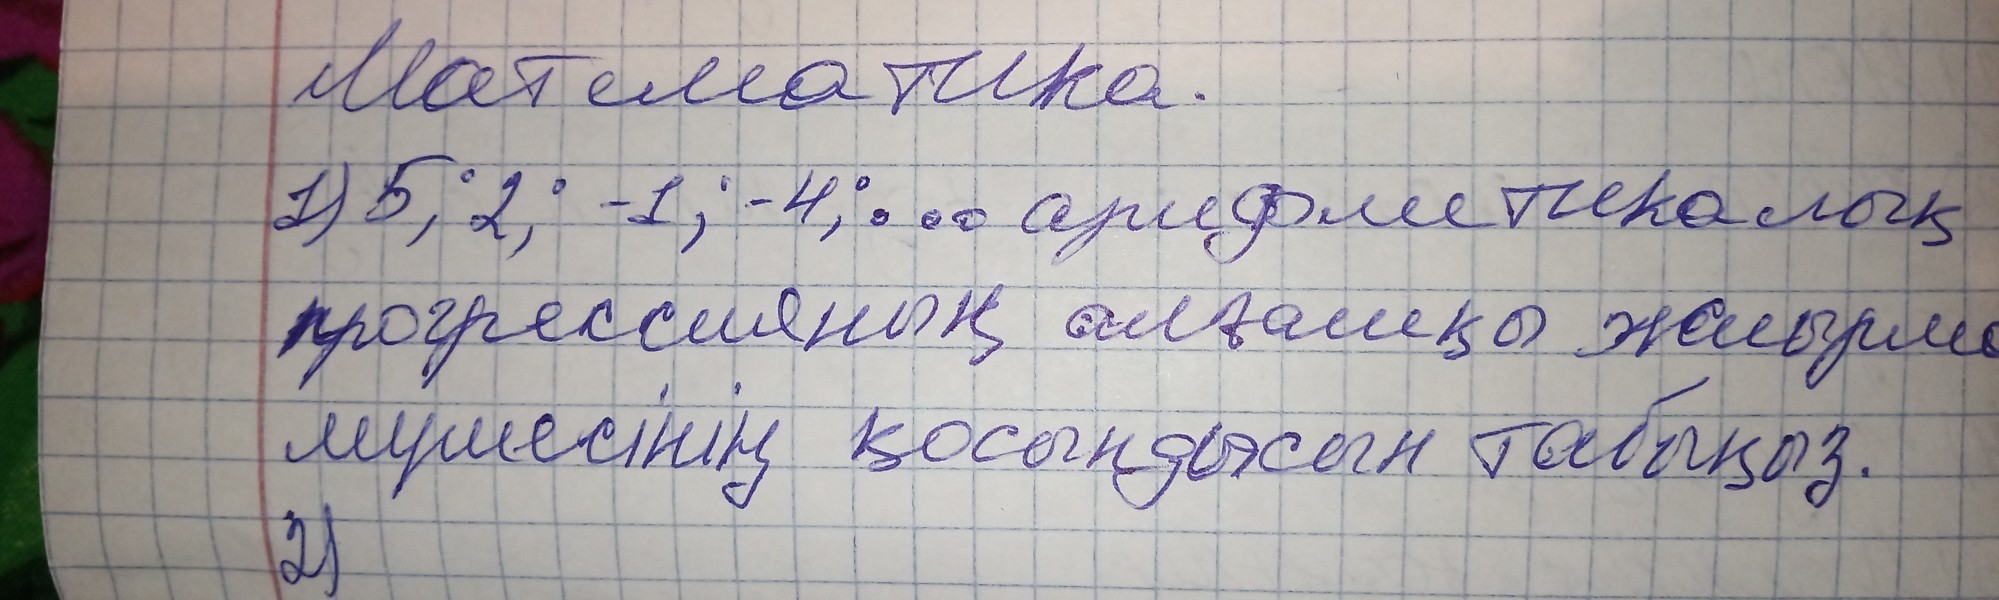 Математика.
1) 5; 2; -1; -4; ... арифметикалық
прогрессияның алғашқы жиырма
мүшесінің қосындысын табыңыз.
2)